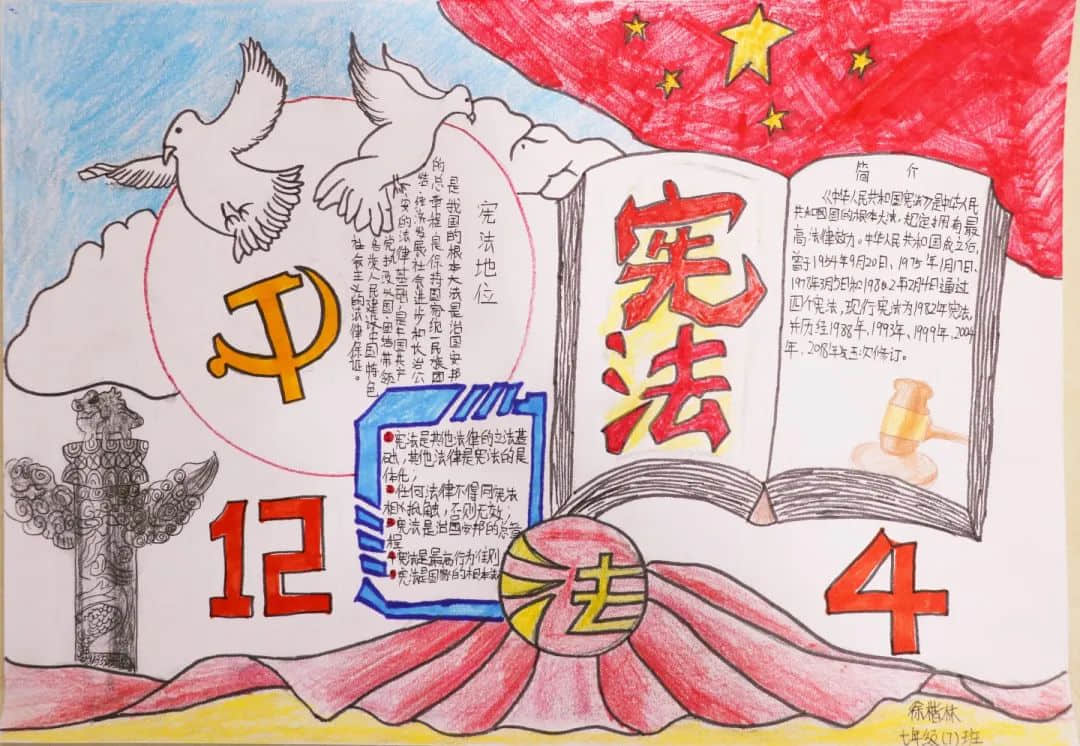 宪法地位
是我国的根本大法是治国安邦
的总章程,是保持国家统一、民族团
结、经济发展、社会进步和长治久
安的法律基础,是中国共产
党执政兴国、团结带领
各族人民建设中国特色
社会主义的法律保证。
宪
法
简 介
《中华人民共和国宪法》是中华人民
共和国国的根本大法,规定拥有最
高法律效力。中华人民共和国成立后,
曾于1954年9月20日、1975年1月17日、
1978年3月5日和1982年12月4日通过
四个宪法,现行宪法为1982年宪法,
并历经1988年、1993年、1999年、2004
年、2018年五次修订。
宪法是其他法律的立法基
础,其他法律是宪法的具
体化;
任何法律不得同宪法
相抵触,否则无效;
宪法是治国安邦的总章
程
宪法是最高行为准则
宪法是国家的根本法
12
4
法
徐楷林
七年级(7)班